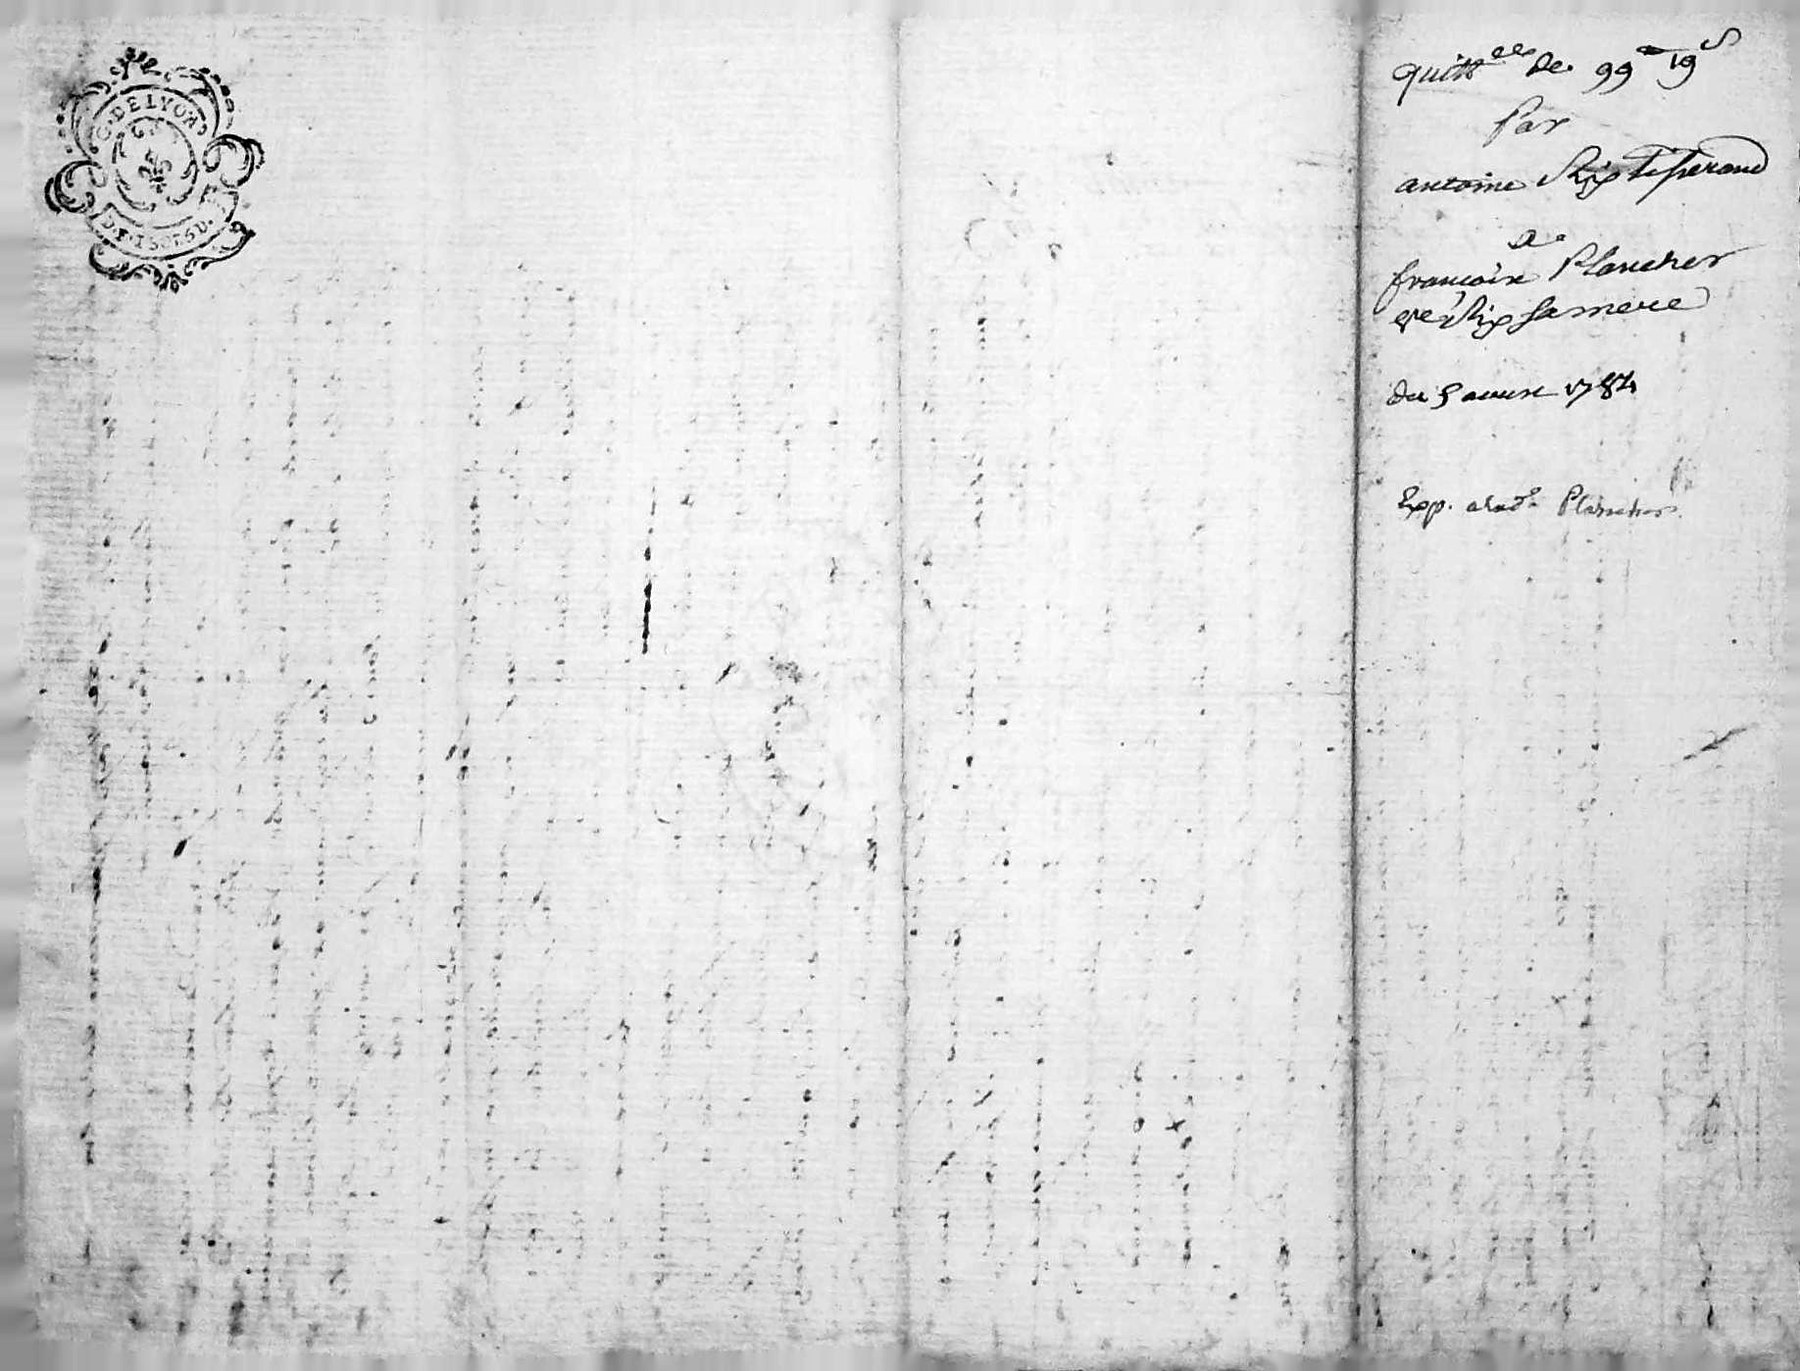 G. DE LYON
quitt.ce de 99# 19s
par
antoine Rip tisserand
a
francoise Plancher
vve Rip sa mere
du 5 avril 1784
Exp. a lad.e Plancher